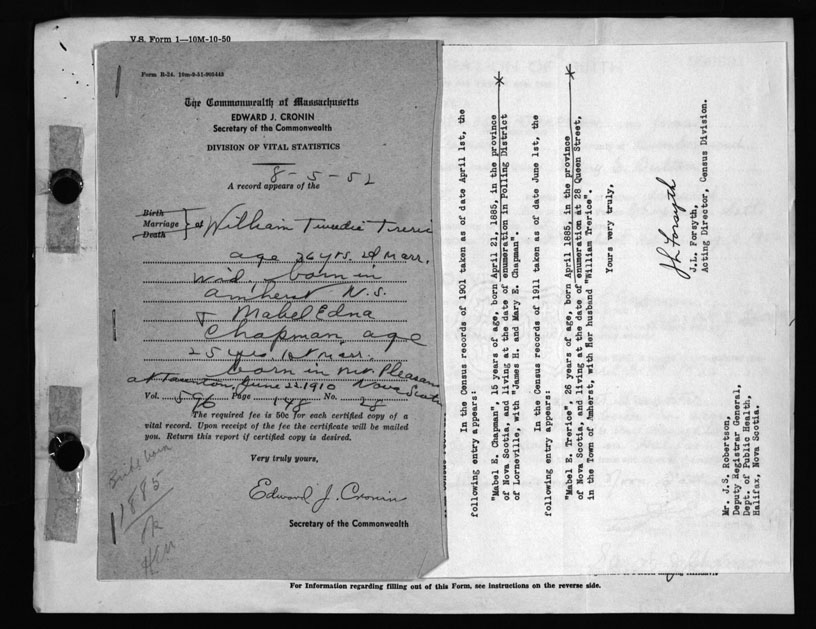 V.S. Form 1—10M-10-50
Form R-24. 10m-9-51-905443
The Commonwealth of Massachusetts
EDWARD J. CRONIN
Secretary of the Commonwealth
DIVISION OF VITAL STATISTICS
8-5-52
A record appears of the
Birth
Marriage } of William Tweedie Treric
Death
age 36 yrs. 2d Marr.
Wid, born in
Amherst N.S.
& Mabel Edna
Chapman, age
25 yrs 1st Marr.
born in Mt. Pleasan
at Taunton, June 22, 1910 Nova Scotia
Vol. 596 Page 148 No. 28
The required fee is 50c for each certified copy of a
vital record. Upon receipt of the fee the certificate will be mailed
you. Return this report if certified copy is desired.
Very truly yours,
Edward J. Cronin
Secretary of the Commonwealth
Bride born
1885
In the Census records of 1901 taken as of date April 1st, the
following entry appears:
"Mabel E. Chapman", 15 years of age, born April 21, 1885, in the province
of Nova Scotia, and living at the date of enumeration in Polling District
of Lorneville, with "James H. and Mary E. Chapman".
In the Census records of 1911 taken as of date June 1st, the
following entry appears:
"Mabel E. Trerice", 26 years of age, born April 1885, in the province
of Nova Scotia, and living at the date of enumeration at 28 Queen Street,
in the Town of Amherst, with her husband "William Trerice".
Yours very truly,
J L Forsyth
J.L. Forsyth,
Acting Director, Census Division.
Mr. J.S. Robertson,
Deputy Registrar General,
Dept. of Public Health,
Halifax, Nova Scotia.
For Information regarding filling out of this Form, see instructions on the reverse side.